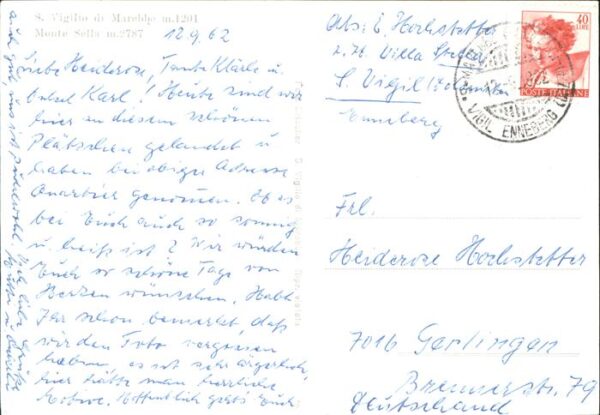 S. Vigilio di Marebbe m.1201
Monte Sella m.2787
12.9.62
Liebe Heiderose, Tante Klärle u.
Onkel Karl! Heute sind wir
hier an diesem schönen
Plätzchen gelandet u.
haben bei obiger Adresse
Quartier genommen. Ob es
bei Euch auch so sonnig
u. heiß ist? Wir würden
Euch so schöne Tage von
Herzen wünschen. Habt
Ihr schon bemerkt, daß
wir den Foto vergessen
haben, es ist sehr ärgerlich,
hier hätte man herrliche
Motive. Hoffentlich geht's Euch
auch gut, uns ist
Abs: E. Hochstetter
z. Zt. Villa Stella
S. Vigil
Enneberg
40
LIRE
POSTE ITALIANE
VIGIL ENNEBERG
Frl.
Heiderose Hochstetter
7016 Gerlingen
Brennerstr. 79
Deutschland